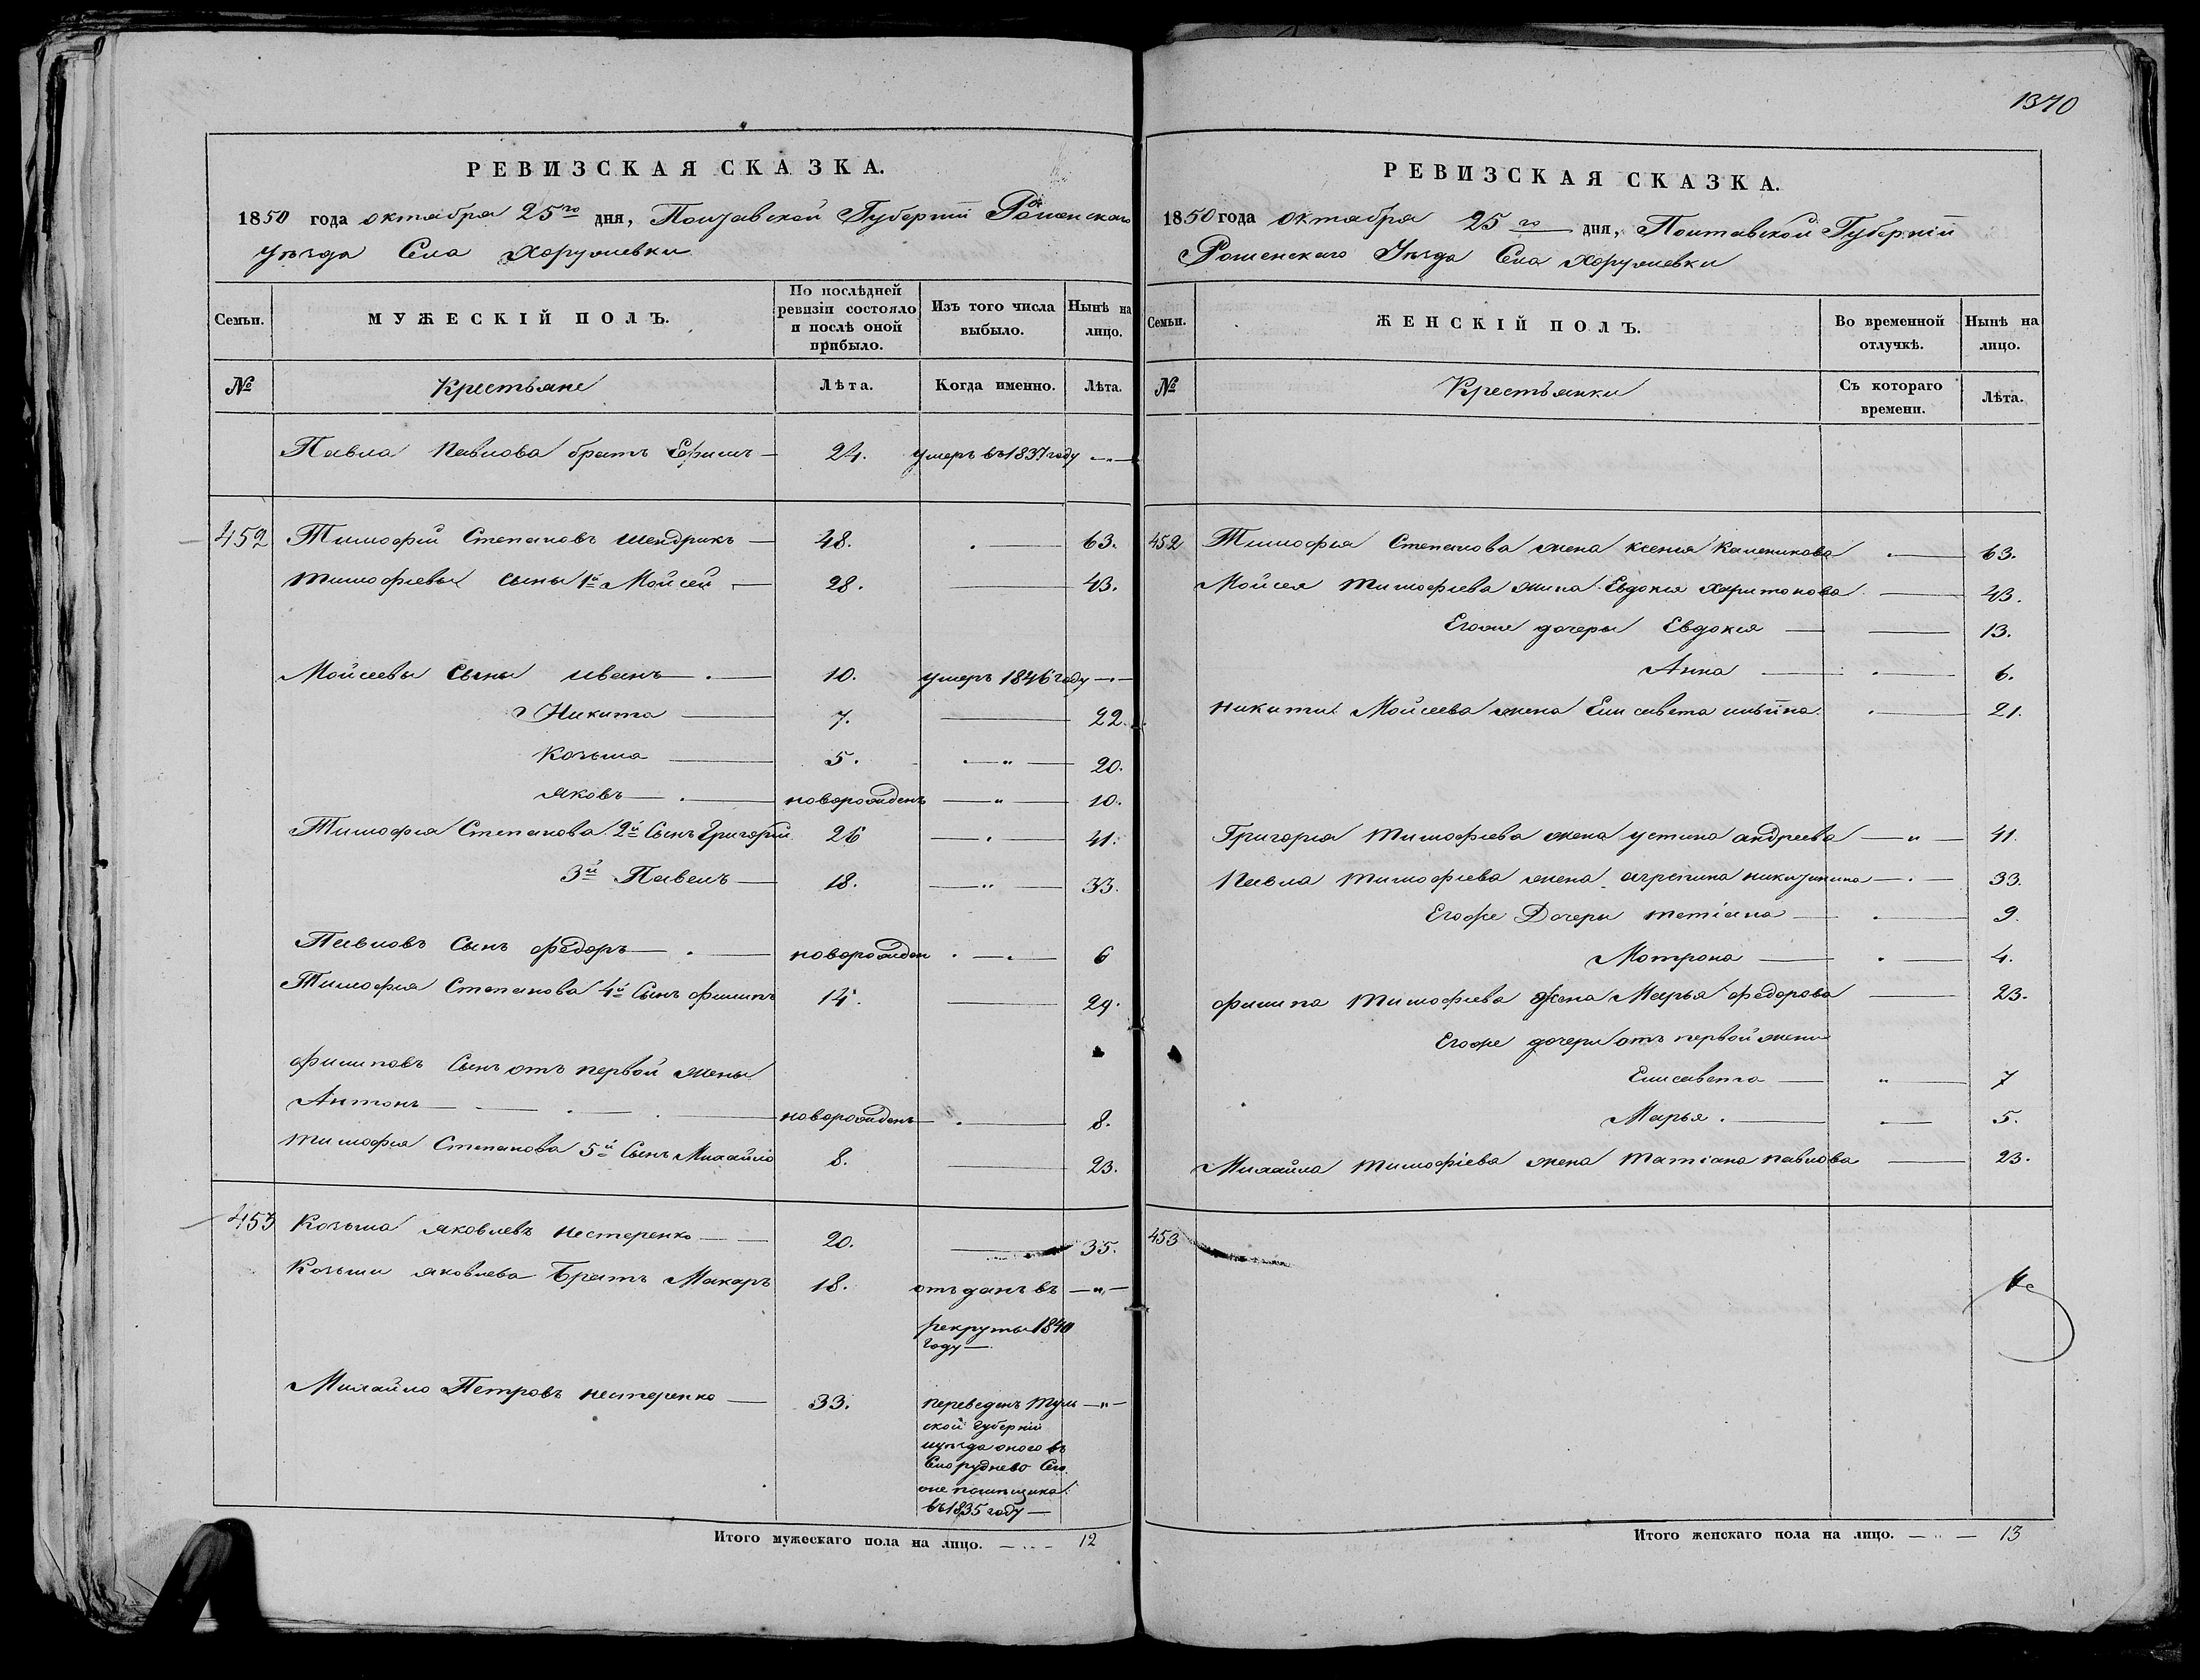 РЕВИЗСКАЯ СКАЗКА.
1850 года октября 25го дня, Полтавской Губерніи Роменскаго
уѣзда Села Хоружевки
Семьи. МУЖЕСКІЙ ПОЛЪ. По послѣдней ревизіи состояло и послѣ оной прибыло. Изъ того числа выбыло. Нынѣ на лицо.
№ Крестьяне Лѣта. Когда именно. Лѣта.
Павла Павлова братъ Ефимъ — 24. умеръ въ 1837 году — " —
452 Тимофій Степановъ Шендрикъ — 48. — 63.
Тимофѣевы сыны 1й Мойсей — 28. — 43.
Мойсеевы сыны иванъ — 10. умеръ 1846 году —
Никита — 7. — 22.
Козьма — 5. — " — 20.
яковъ — новорожденъ — " — 10.
Тимофея Степанова 2й Сынъ Григорій 26 — 41.
3й Павелъ — 18. — " — 33.
Павловъ Сынъ Федоръ — новорожден — 6
Тимофея Степанова 4й Сынъ филипъ 14. — 29.
филиповъ Сынъ отъ первой жены
Антонъ — новорожденъ — 8.
тимофея Степанова 5й Сынъ Михайло 8. — 23.
453 Козьма яковлевъ нестеренко — 20. — 35.
Козьми яковлева Братъ Макаръ 18. отъданъ въ — " —
рекруты 1840
году —
Михайло Петровъ нестеренко — 33. переведенъ тул — " —
ской губерніи
уѣзда оного въ
Село руднево
помѣщика
въ 1835 году —
Итого мужескаго пола на лицо. — " — 12
1370
РЕВИЗСКАЯ СКАЗКА.
1850 года октября 25го дня, Полтавской Губерніи
Роменскаго Уѣзда Села Хоружевки
Семьи. ЖЕНСКІЙ ПОЛЪ. Во временной отлучкѣ. Нынѣ на лицо.
№ Крестьянки Съ котораго времени. Лѣта.
452 Тимофея Степанова жена ксенія — 63.
Мойсея тимофѣева жина Евдокія харитонова — 43.
Егоже дочеры Евдокія — 13.
Анна — 6.
никиты Мойсеева жена Елисавета ильина — 21.
Григорія тимофѣева жена устина андреева — " — 41.
Павла тимофѣева жена агрепина — 33.
Егоже Дочеры тетіана — 9.
Мотрона — 4.
филипа тимофѣева жена Марья федорова — 23.
Егоже дочери отъ первой жени
Елисавета — " — 7
Марья — 5.
Михайла тимофіева жена татіана павлова — 23.
453
Итого женскаго пола на лицо. — " — 13